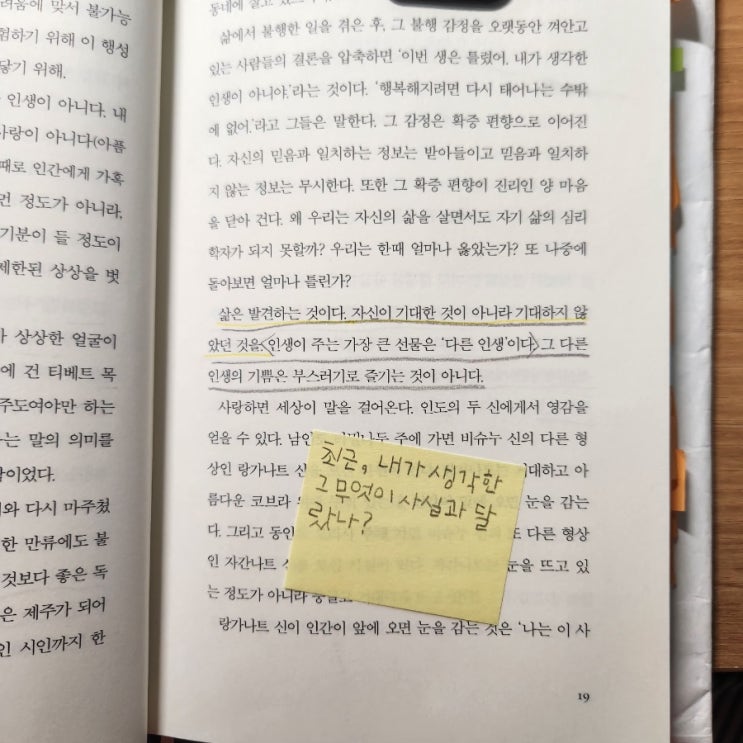 려움에 맞서 불가능
험하기 위해 이 행성
닿기 위해.
인생이 아니다. 내
사랑이 아니다(아픔
때로 인간에게 가혹
먼 정도가 아니라,
기분이 들 정도이
제한된 상상을 벗
상상한 얼굴이
에 건 티베트 목
주도여야만 하는
는 말의 의미를
이었다.
와 다시 마주쳤
한 만류에도 불
것보다 좋은 독
은 제주가 되어
인 시인까지 한
삶에서 불행한 일을 겪은 후, 그 불행 감정을 오랫동안 껴안고
있는 사람들의 결론을 압축하면 ‘이번 생은 틀렸어. 내가 생각한
인생이 아니야.’라는 것이다. ‘행복해지려면 다시 태어나는 수밖
에 없어.’라고 그들은 말한다. 그 감정은 확증 편향으로 이어진
다. 자신의 믿음과 일치하는 정보는 받아들이고 믿음과 일치하
지 않는 정보는 무시한다. 또한 그 확증 편향이 진리인 양 마음
을 닫아 건다. 왜 우리는 자신의 삶을 살면서도 자기 삶의 심리
학자가 되지 못할까? 우리는 한때 얼마나 옳았는가? 또 나중에
돌아보면 얼마나 틀린가?
삶은 발견하는 것이다. 자신이 기대한 것이 아니라 기대하지 않
았던 것을. 인생이 주는 가장 큰 선물은 ‘다른 인생’이다. 그 다른
인생의 기쁨은 부스러기로 즐기는 것이 아니다.
사랑하면 세상이 말을 걸어온다. 인도의 두 신에게서 영감을
얻을 수 있다. 남인 주에 가면 비슈누 신의 다른 형
상인 랑가나트 신 대하고 아
름다운 코브라 눈을 감는
다. 그리고 동인 또 다른 형상
인 자간나트 눈을 뜨고 있
는 정도가 아니라
랑가나트 신이 인간이 앞에 오면 눈을 감는 것은 ‘나는 이 사
19
최근, 내가 생각한
그 무엇이 사실과 달
랐나?